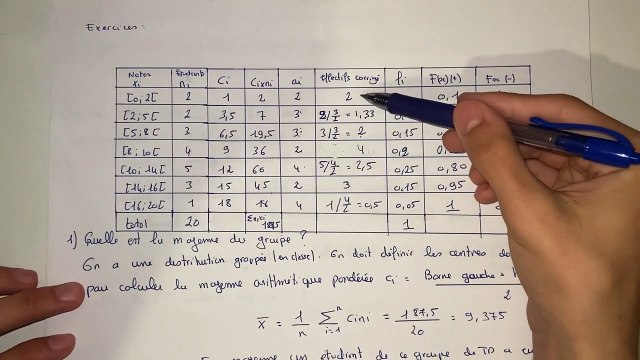 Exercices:
Notes xi | Etudiants ni | Ci | Cixni | ai | Effectifs corrigé | fi | F(x)(+) | F(x)(-)
[0;2[ 2 1 2 2 2 0,1
[2;5[ 2 3,5 7 3 2/3/2 = 1,33
[5;8[ 3 6,5 19,5 3 3/3/2 = 2 0,15
[8;10[ 4 9 36 2 4 0,2
[10;14[ 5 12 60 4 5/4/2 = 2,5 0,25 0,80
[14;16[ 3 15 45 2 3 0,15 0,95
[16;20[ 1 18 18 4 1/4/2 = 0,5 0,05 1
total 20 Σnixi 1
1) Quelle est la moyenne du groupe ?
On a une distribution groupée (en classe). On doit définir les centres
pour calculer la moyenne arithmétique pondérée ci = Borne gauche +
2
x̄ = 1/n Σ i=1 n cini = 187,5/20 = 9,375
un étudiant de ce groupe de TD a